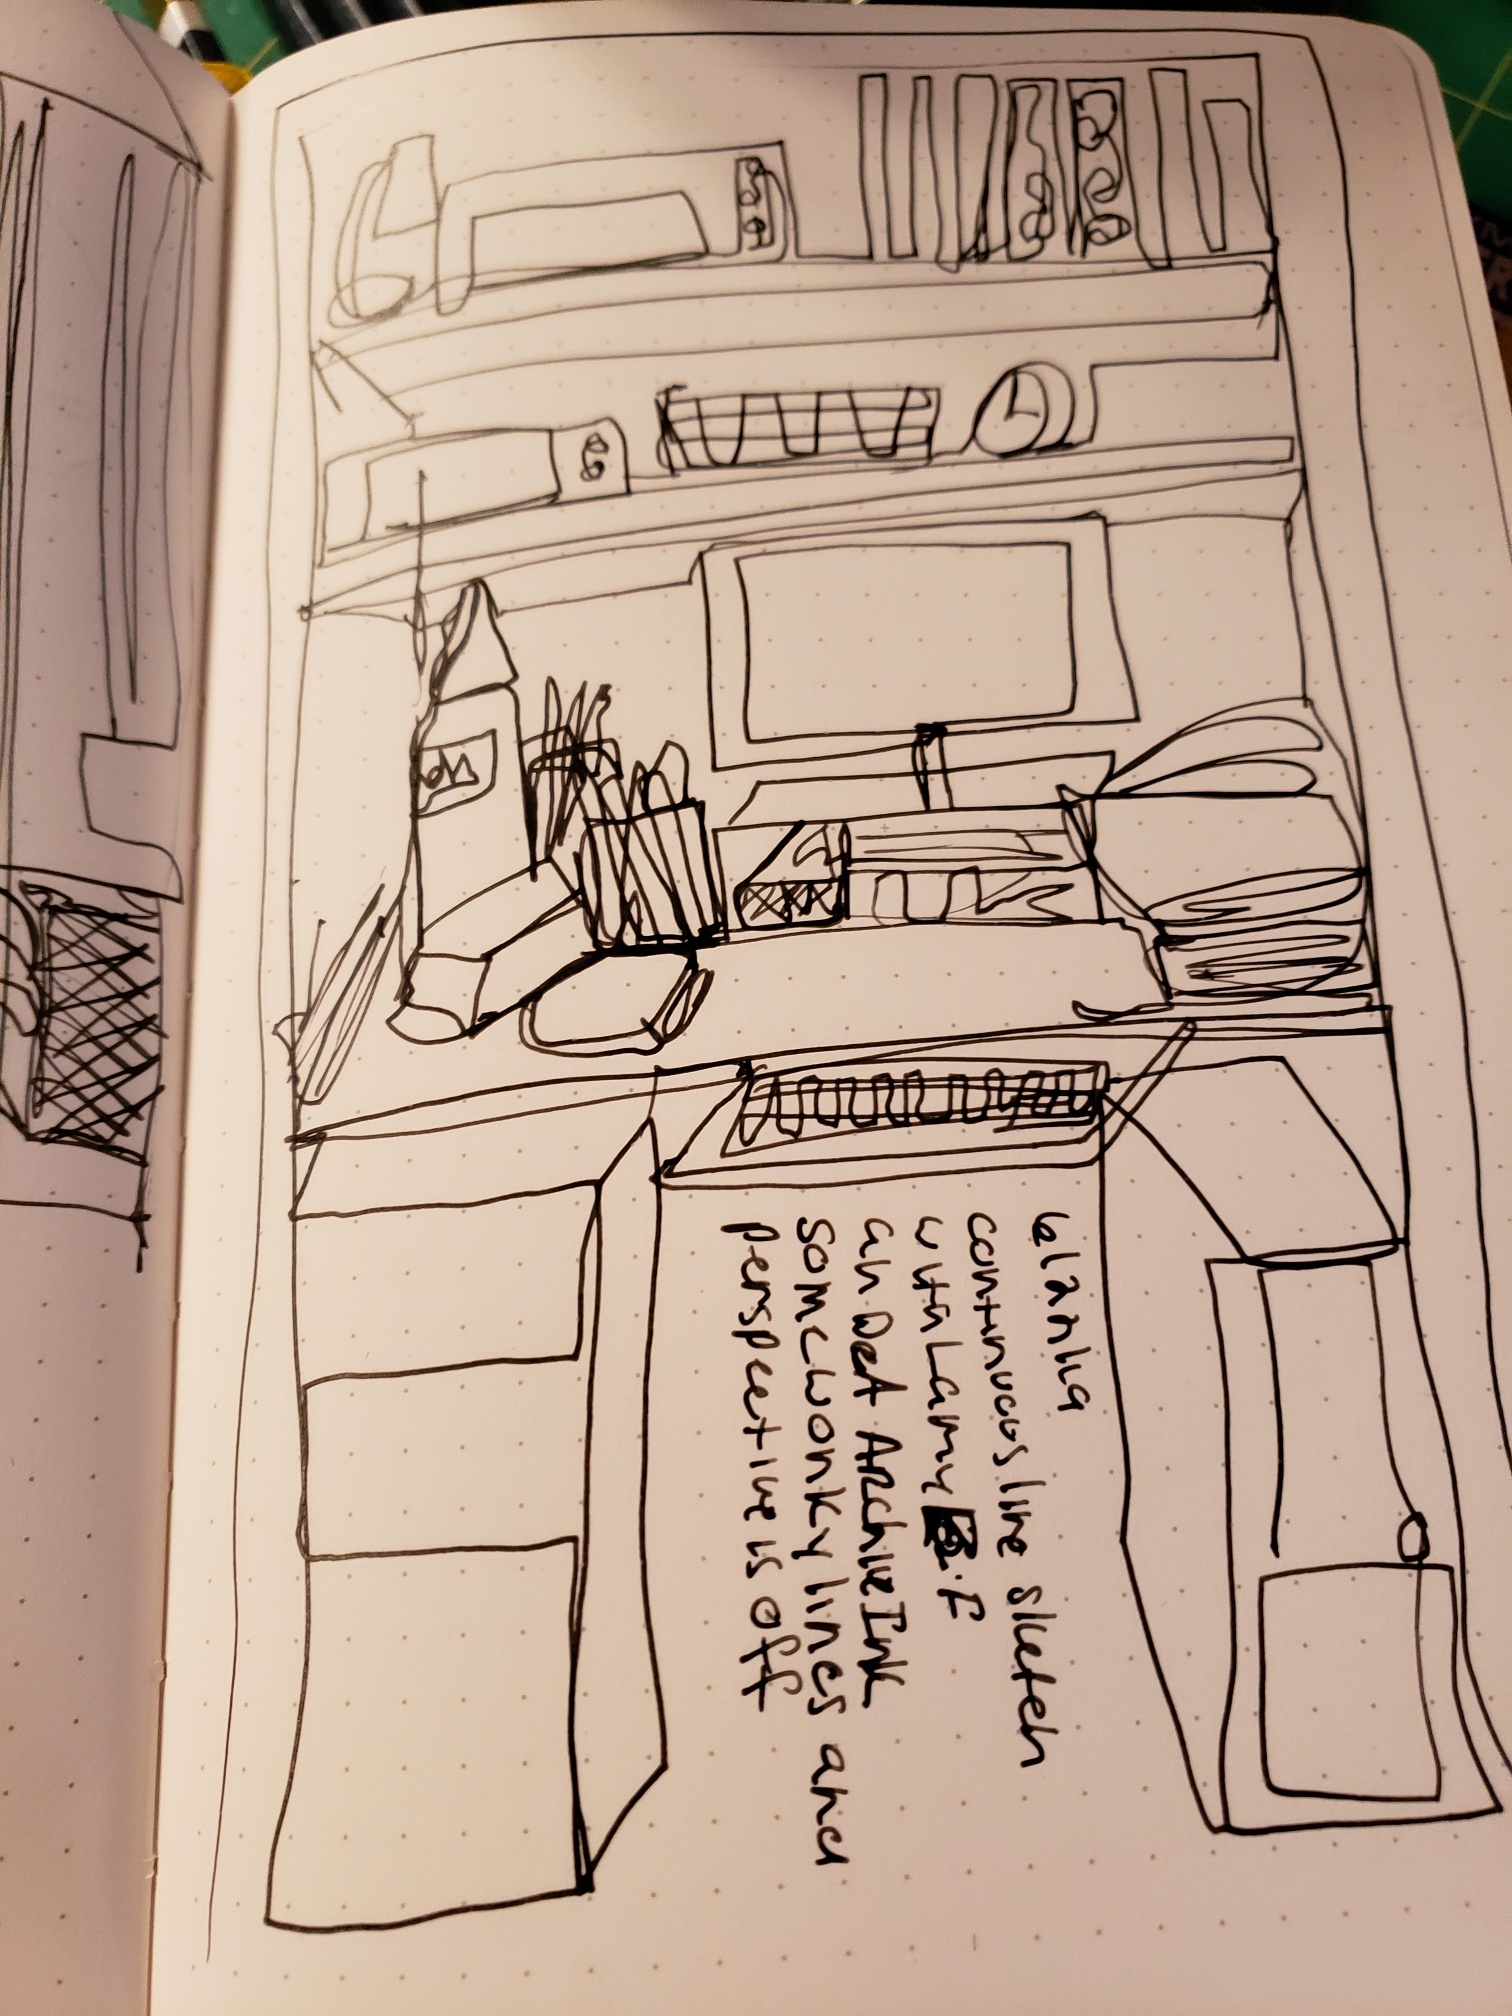 continuous line sketch
with Lamy F
an DeA Archive Ink
some wonky lines and
perspective is off